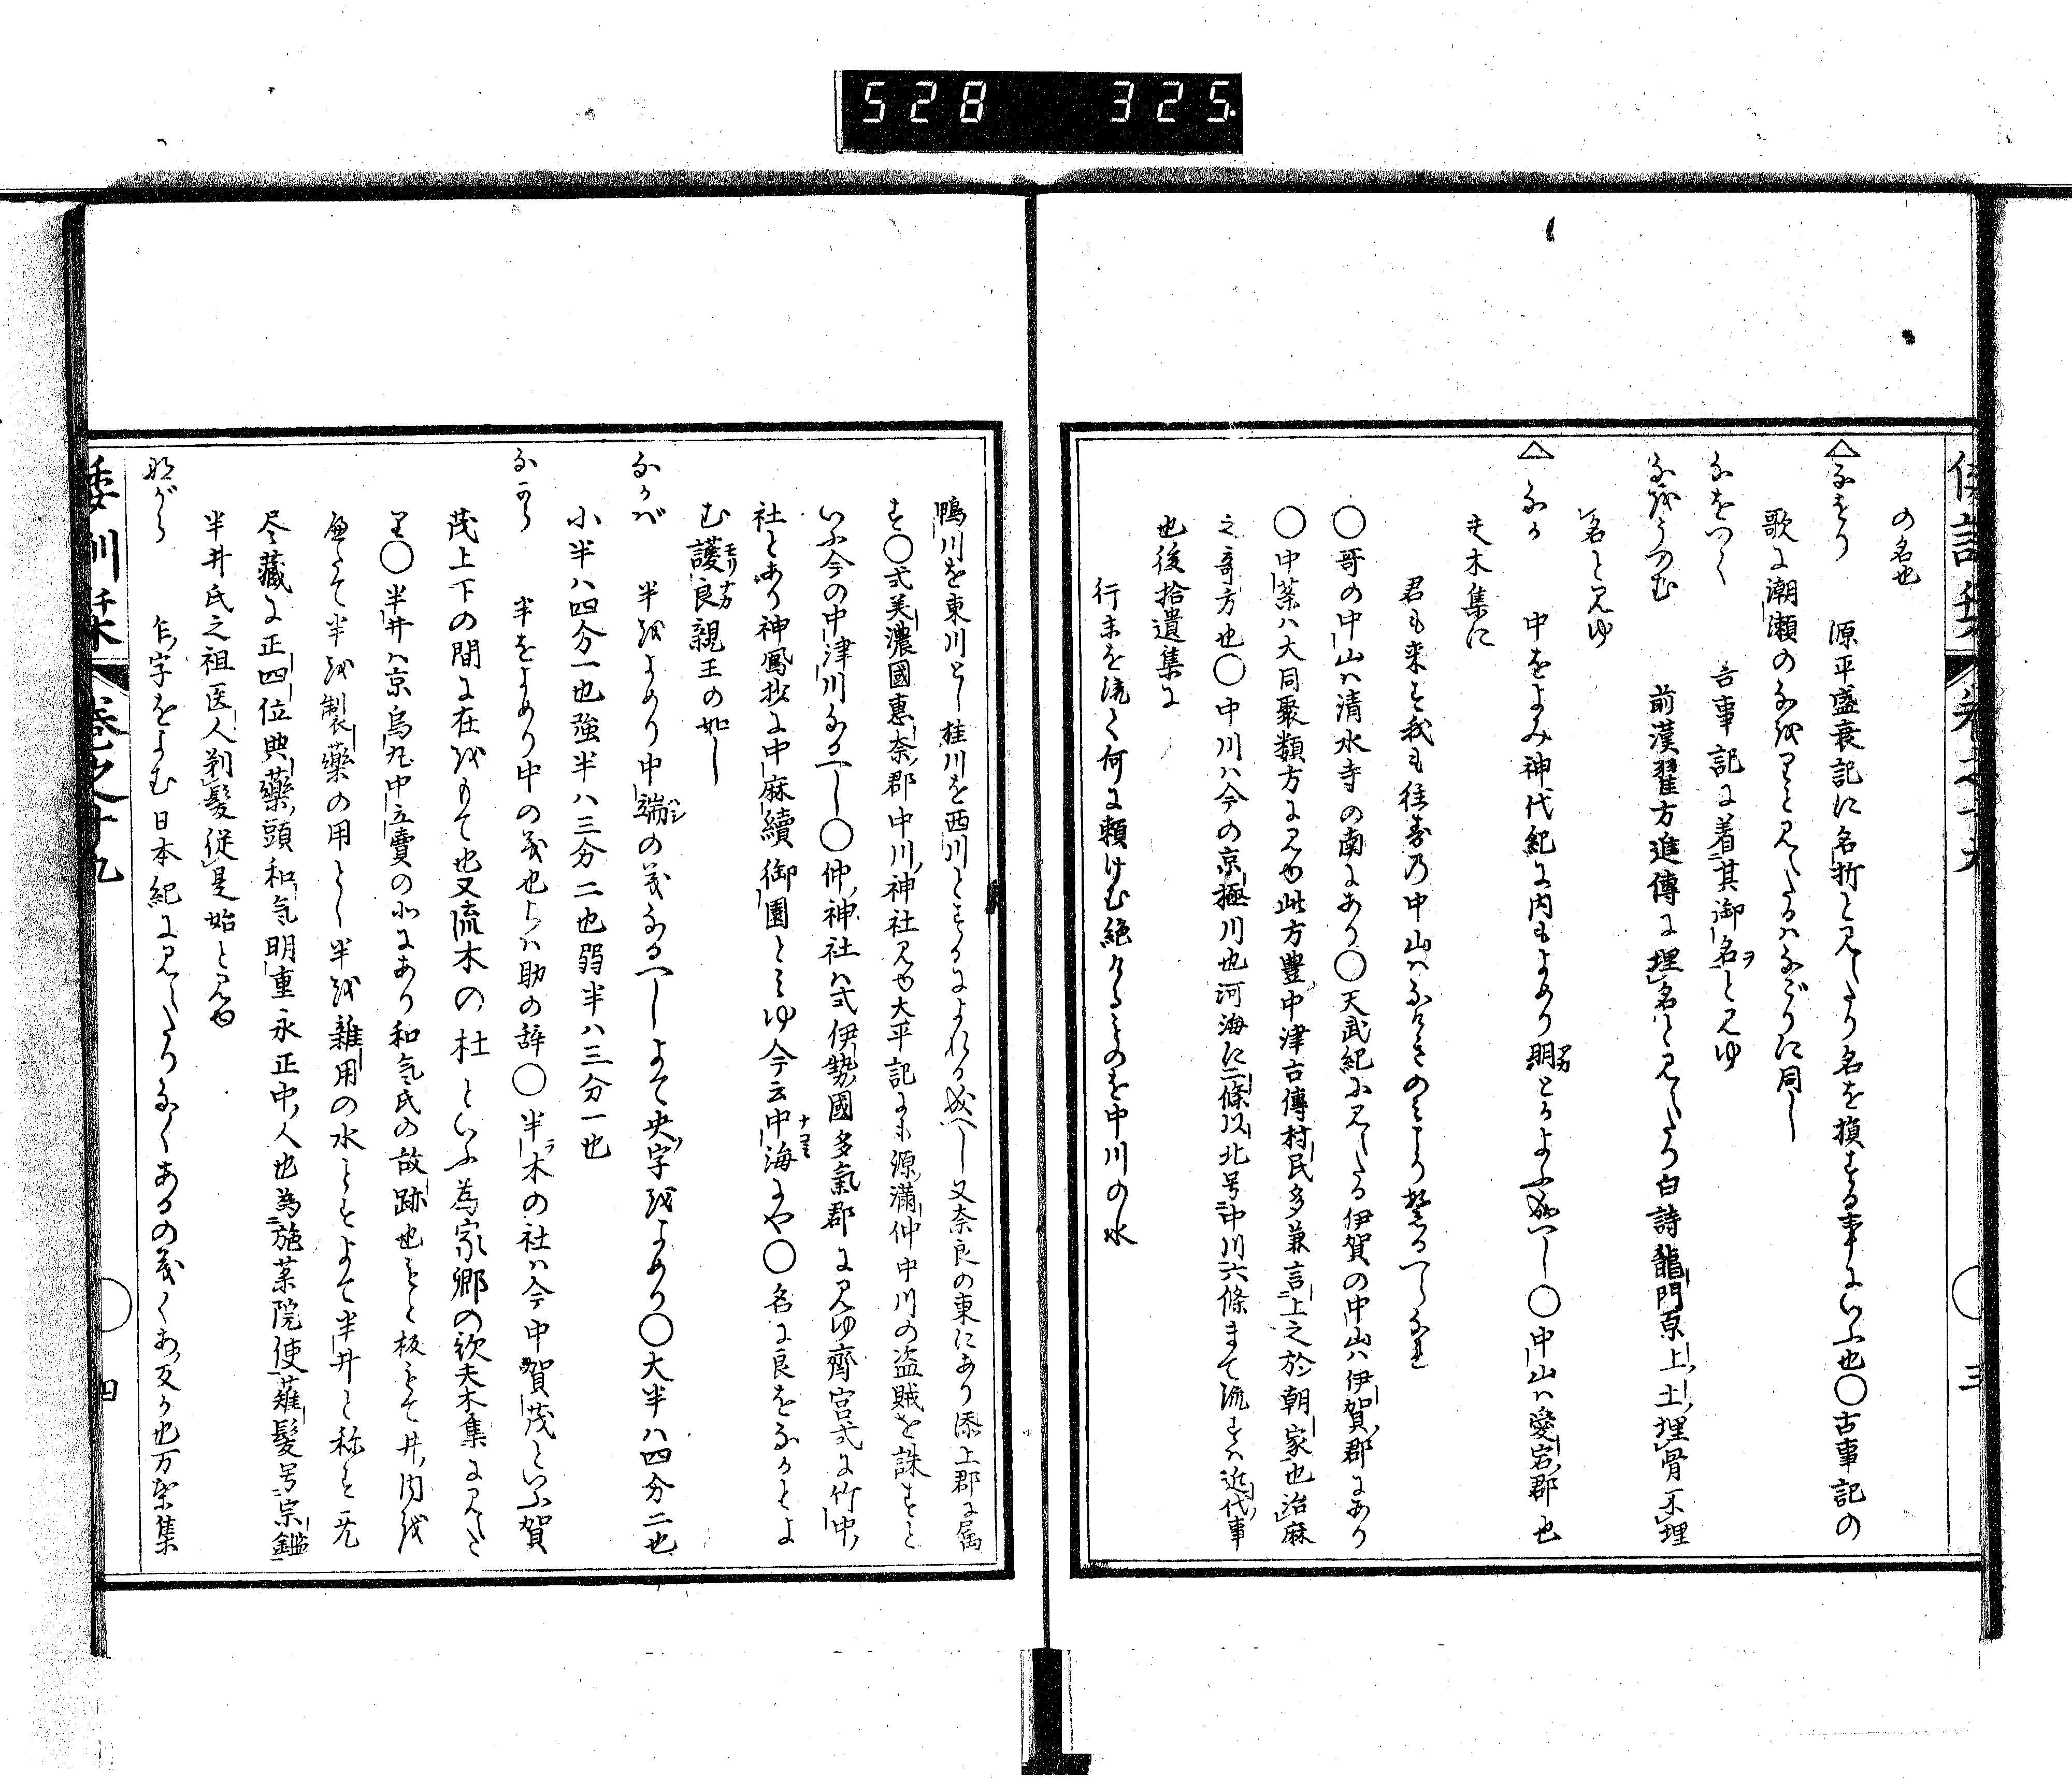 528 325.
の名也
△なをり 源平盛衰記に名折と見えたり名を損する事にいふ也〇古事記の
歌に潮瀬のなをりと見えたるはなごりに同し
なをつく 吉事記に着其御名ヲと見ゆ
なをうつむ 前漢翟方進傳に埋名と見えたり白詩龍門原上土埋骨不埋
名と見ゆ
△なか 中をよみ神代紀に内もよめり
〇中山は愛宕郡也
夫木集に
君も来す我も往
〇哥の中山は清水寺の南にあり〇天武紀に見えたる伊賀の中山は伊賀郡にあり
〇中藥は大同聚類方に見ゆ此方豊中津古傳村民多兼言上之於朝家也治麻
之奇方也〇中川は今の京極川也河海に二條以北号中川六條まて流すは近代事
也後拾遺集に
行末を流て何に頼けむ絶けるものを中川の水
鴨川を東川とし桂川を西川とするによれる成へし又奈良の東にあり添上郡に属
す〇式美濃國惠奈郡中川神社見ゆ大平記にも源満仲中川の盗賊を誅すと
いふ今の中津川なるへし〇仲神社は式伊勢國多氣郡に見ゆ齊宮式に竹中
社とあり神鳳抄に中麻續御園とみゆ今云中海にや〇名に良をなかとよ
む護良親王の如し
なかば 半をよめり中端ハシの義なるへしよて央字をよめり〇大半ハ四分二也
小半ハ四分一也強半ハ三分二也弱半ハ三分一也
なから 半をよめり中の義也らは助の辞〇半ラ木の社は今中賀茂といふ賀
茂上下の間に在をもて也又流木の杜といふ為家卿の歌夫木集に見えた
り〇半井は京烏丸中立賣の北にあり和氣氏の故跡也もと板もて井ノ内を
て半を製藥の用とし半を雑用の水とすよて半井と称す
尽藏に正四位典藥頭和気明重永正中人也為施薬院使薙髪号宗鑑
半井氏之祖医人剃髪従是始と見ゆ
ながら 乍字をよむ日本紀に見えたり
万葉集
倭訓栞 巻之十九 〇 三
倭訓栞 巻之十九 〇 四